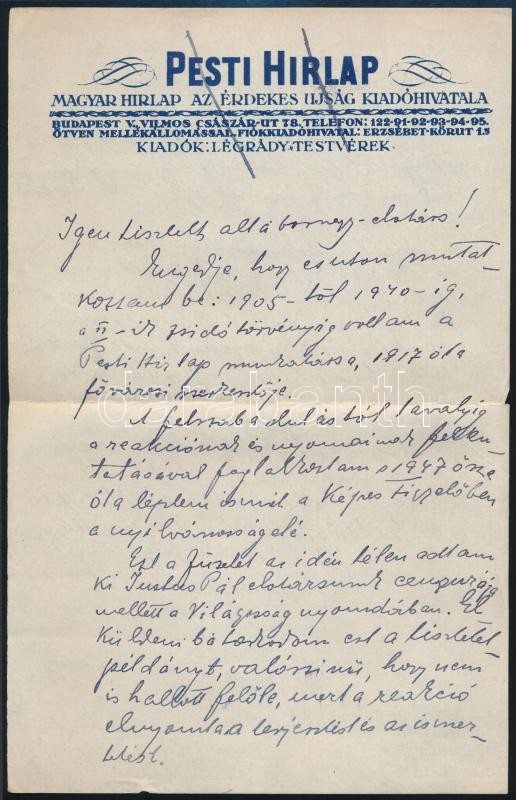 PESTI HIRLAP
MAGYAR HIRLAP AZ ÉRDEKES UJSÁG KIADÓHIVATALA
BUDAPEST V., VILMOS CSÁSZÁR-UT 78. TELEFON: 122-91-92-93-94-95.
ÖTVEN MELLÉKÁLLOMÁSSAL. FIÓKKIADÓHIVATAL: ERZSÉBET-KÖRUT 1.
KIADÓK: LÉGRÁDY-TESTVÉREK
Igen tisztelt altábornagy-elvtárs!
Engedje, hogy ezuton mutat-
kozzam be: 1905-től 1940-ig,
a II-ik zsidótörvényig voltam a
Pesti Hirlap munkatársa, 1917 óta
fővárosi szerkesztője.
A felszabadulástól tavalyig
a reakciónak és nyomainak felku-
tatásával foglalkoztam s 1947 ősze
óta léptem ismét a Képes Figyelőben
a nyilvánosság elé.
Ezt a füzetet az idén télen adtam
ki Justus Pál elvtársunk cenzurája
mellett a Világosság nyomdában. El
küldeni bátorkodom ezt a tisztelet
példányt, valószinü, hogy nem
is hallott felőle, mert a reakció
elnyomta a terjesztést és az ismer-
tetést.
databanth